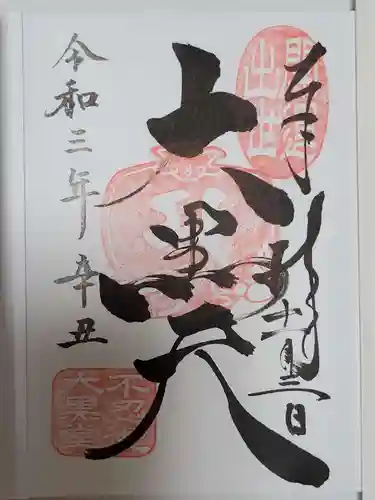 奉拝
十一月三日
大黒天
令和三年 辛丑
開運
出世
不忍池
大黒堂